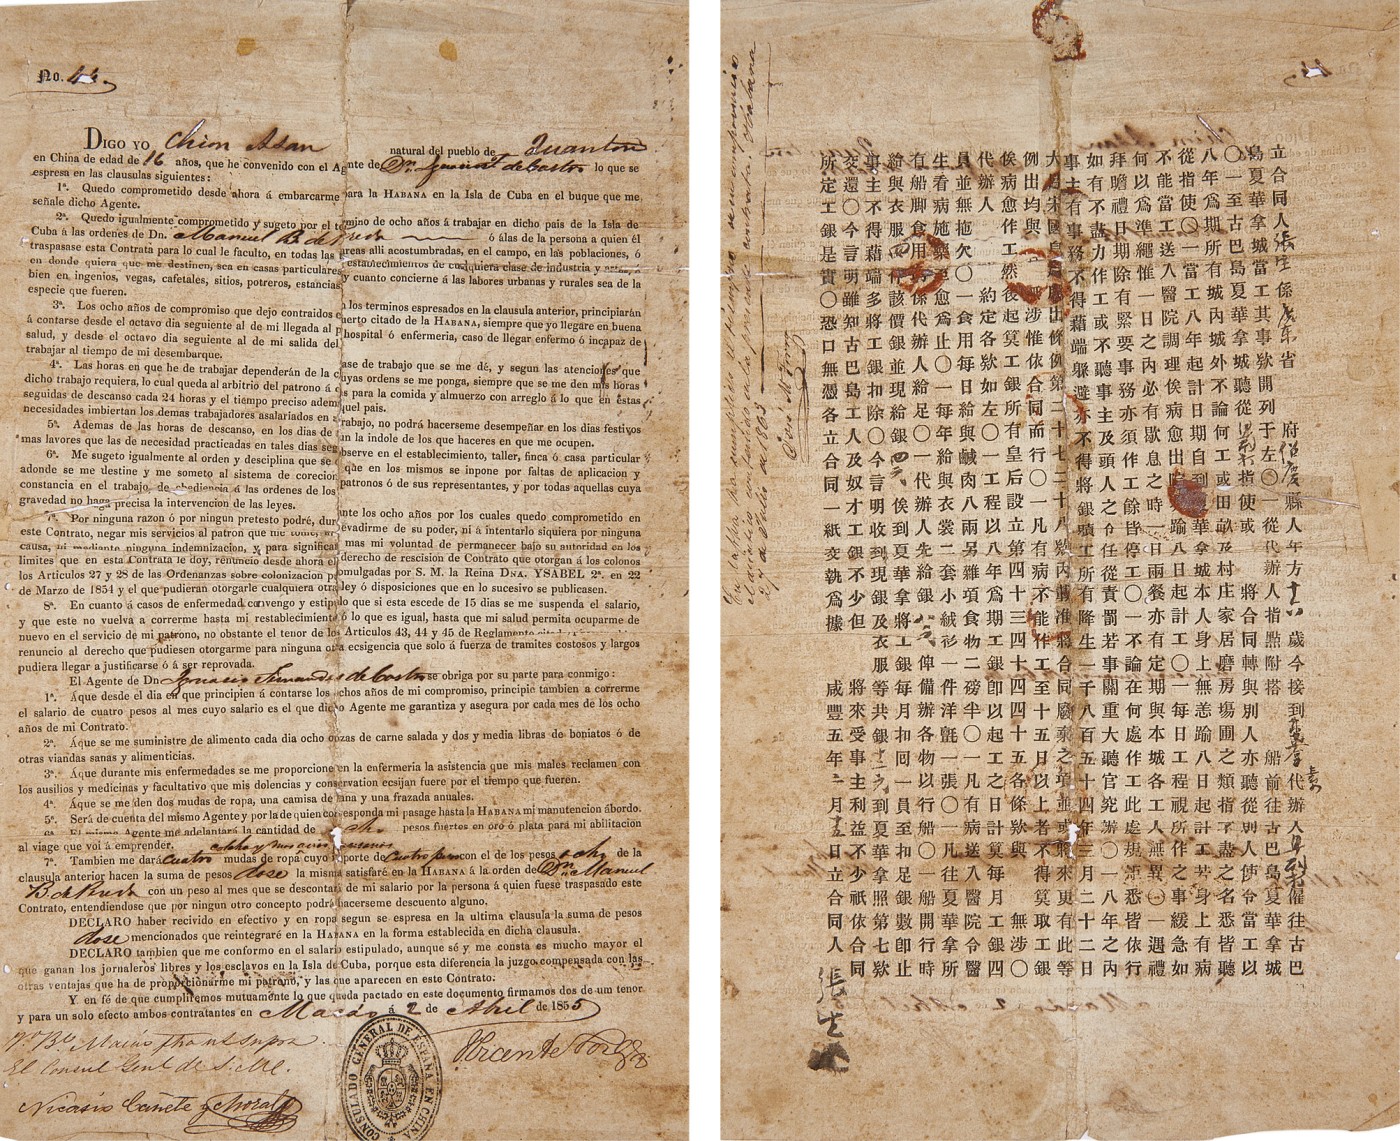 No.
DIGO YO Chion Asan natural del pueblo de
en China de edad de 16 años, que he convenido con el Agente de Dn. lo que se
espresa en las clausulas siguientes:
1ª. Quedo comprometido desde ahora á embarcarme para la HABANA en la Isla de Cuba en el buque que me
señale dicho Agente.
2ª. Quedo igualmente comprometido y sugeto por el termino de ocho años á trabajar en dicho pais de la Isla de
Cuba á las ordenes de Dn. Manuel B. de ó álas de la persona a quien él
traspasase esta Contrata para lo cual le faculto, en todas las tareas allí acostumbradas, en el campo, en las poblaciones, ó
en donde quiera que me destinen, sea en casas particulares establecimientos de cualquiera clase de industria y
bien en ingenios, vegas, cafetales, sitios, potreros, estancias y cuanto concierne á las labores urbanas y rurales sea de la
especie que fueren.
3ª. Los ocho años de compromiso que dejo contraidos en los terminos espresados en la clausula anterior, principiarán
á contarse desde el octavo dia seguiente al de mi llegada al Puerto citado de la HABANA, siempre que yo llegare en buena
salud, y desde el octavo dia seguiente al de mi salida del hospital ó enfermeria, caso de llegar enfermo ó incapaz de
trabajar al tiempo de mi desembarque.
4ª. Las horas en que he de trabajar dependerán de la clase de trabajo que se me dé, y segun las atenciones que
dicho trabajo requiera, lo cual queda al arbitrio del patron á cuyas ordenes se me ponga, siempre que se me den mis horas
seguidas de descanso cada 24 horas y el tiempo preciso ademas para la comida y almuerzo con arreglo á lo que en éstas
necesidades imbiertan los demas trabajadores asalariados en aquel pais.
5ª. Ademas de las horas de descanso, en los dias de trabajo, no podrá hacerseme desempeñar en los dias festivos
mas lavores que las de necesidad practicadas en tales dias segun la indole de los que haceres en que me ocupen.
6ª. Me sugeto igualmente al orden y desciplina que se observe en el establecimiento, taller, finca ó casa particular
adonde se me destine y me someto al sistema de corecion que en los mismos se inpone por faltas de aplicacion y
constancia en el trabajo, de obediencia á las ordenes de los patronos ó de sus representantes, y por todas aquellas cuya
gravedad no haga precisa la intervencion de las leyes.
7ª. Por ninguna razón ó por ningun pretesto podré, durante los ocho años por los cuales quedo comprometido en
este Contrato, negar mis servicios al patron que me tome, ni evadirme de su poder, ni á intentarlo siquiera por ninguna
causa, ni mediante ninguna indemnizacion, y para significar mas mi voluntad de permanecer bajo su autoridad en los
limites que en esta Contrata le doy, renuncio desde ahora el derecho de rescision de Contrato que otorgan á los colonos
los Articulos 27 y 28 de las Ordenanzas sobre colonizacion promulgadas por S. M. la Reina DNA. YSABEL 2ª. en 22
de Marzo de 1854 y el que pudieran otorgarle cualquiera otra ley ó disposiciones que en lo sucesivo se publicasen.
8ª. En cuanto á casos de enfermedad, convengo y estipulo que si esta escede de 15 dias se me suspenda el salario,
y que este no vuelva a correrme hasta mi restablecimiento ó lo que es igual, hasta que mi salud permita ocuparme de
nuevo en el servicio de mi patrono, no obstante el tenor de los Articulos 43, 44 y 45 de Reglamento
renuncio al derecho que pudiesen otorgarme para ninguna otra ecsigencia que solo á fuerza de tramites costosos y largos
pudiera llegar a justificarse ó á ser reprovada.
El Agente de Dn Ygnacio Fernandez de Castro se obliga por su parte para conmigo:
1ª. Aque desde el dia en que principien á contarse los ochos años de mi compromiso, principio tambien a correrme
el salario de cuatro pesos al mes cuyo salario es el que dicho Agente me garantiza y asegura por cada mes de los ocho
años de mi Contrato.
2ª. Aque se me suministre de alimento cada dia ocho onzas de carne salada y dos y media libras de boniatos ó de
otras viandas sanas y alimenticias.
3ª. Aque durante mis enfermedades se me proporcione en la enfermeria la asistencia que mis males reclamen con
los ausilios y medicinas y facultativo que mis dolencias y conservation ecsijan fuere por el tiempo que fueren.
4ª. Aque se me den dos mudas de ropa, una camisa de lana y una frazada anuales.
5ª. Será de cuenta del mismo Agente y por la de quien corresponda mi pasage hasta la HABANA mi manutencion ábordo.
6ª. El mismo Agente me adelantará la cantidad de ocho pesos fuertes en oro ó plata para mi abilitacion
al viage que voi á emprender.
7ª. Tambien me dará cuatro mudas de ropa cuyo importe de cuatro pesos con el de los pesos ocho de la
clausula anterior hacen la suma de pesos dose la misma satisfaré en la HABANA á la orden de Dn. Manuel
B. de con un peso al mes que se descontará de mi salario por la persona á quien fuese traspasado este
Contrato, entendiendose que por ningun otro concepto podrá hacerseme descuento alguno.
DECLARO haber recivido en efectivo y en ropa segun se espresa en la ultima clausula la suma de pesos
dose mencionados que reintegraré en la HABANA en la forma establecida en dicha clausula.
DECLARO tambien que me conformo en el salario estipulado, aunque sé y me consta es mucho mayor el
que ganan los jornaleros libres y los esclavos en la Isla de Cuba, porque esta diferencia la juzgo compensada con las
otras ventajas que ha de proporcionarme mi patrono, y las que aparecen en este Contrato.
Y en fé de que cumpliremos mutuamente lo que queda pactado en este documento firmamos dos de un tenor
y para un solo efecto ambos contratantes en Macáo á 2 de Abril de 1855
Vicente
El Consul Genl. de S. M. C.
Nicasio Cañete y Moral
CONSULADO GENERAL DE ESPAÑA EN CHINA
立合同人張生係廣東省 府 縣人年方十六歲今接到 代辦人 僱往古巴
島夏華拿城當工其事欵開列于左〇一從代辦人指點附搭 船前往古巴島夏華拿城
〇一至古巴島夏華拿城聽從 指使或 將合同轉與別人亦聽從別人使令當工以
八年爲期所有城內城外不論何工或田畝及村庄家居磨房塲圃之類指了不盡之名悉皆聽
從指使〇一當工八年起計日期自到夏華拿城本人身上無恙踰八日起計工若身上有病
不能當工送入醫院調理俟病愈出院踰八日起計工〇一每日工程視所作之事緩急如
何以爲準繩惟一日之內必有歇息之時一日兩餐亦有定期與本城各工人無異〇一遇禮
拜瞻禮日期除有緊要事務亦須作工餘皆停工〇一不論在何處作工此處規矩悉皆依行
如有不盡力作工或不聽事主及頭人之令任從責罰若事關重大聽官究辦〇一八年之內
事主有事務不得藉端躱避亦不得將銀贖工所有降生一千八百五十四年三月二十二日
大呂宋國皇 出條例第二十七二十八欵內 准將合同廢棄之項 將來更有此等
例出均與 無涉惟依合同而行〇一凡有病不能作工至十五日以上者不得莫取工銀
俟病愈作工然後起算工銀所有皇后設立第四十三四十四四十五各條欵與 無涉〇
代辦人 約定各欵如左〇一工程以八年爲期工銀即以起工之日計算每月工銀四
員並無拖欠〇一食用每日給與鹹肉八兩另雜項食物二磅半〇一凡有病送入醫院令醫
生看病施藥至愈爲止〇一每年給與衣裳二套小絨衫一件洋氈一張〇一凡往夏華拿所
有船脚食用等係代辦人給足〇一代辦人先給銀八大元俾備辦各物以行船〇一船開行時
給與衣服四件該價銀並現給銀四大元俟到夏華拿將工銀每月扣同一員至扣足銀數即止
事主不得藉端多將工銀扣除〇今言明收到現銀及衣服等共銀十二元到夏華拿照第七欵
交還〇今言明雖知古巴島工人及奴才工銀不少但 將來受事主利益不少祇依合同
所定工銀是實〇恐口無憑各立合同一紙交執爲據 咸豐五年二月十五日立合同人 張生